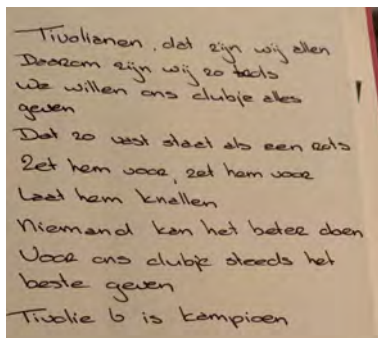 Tivolianen, dat zijn wij allen
Daarom zijn wij zo trots
We willen ons clubje alles
geven
Dat zo vast staat als een rots
Zet hem voor, zet hem voor
Laat hem knallen
Niemand kan het beter doen
Voor ons clubje steeds het
beste geven
Tivolie 6 is kampioen